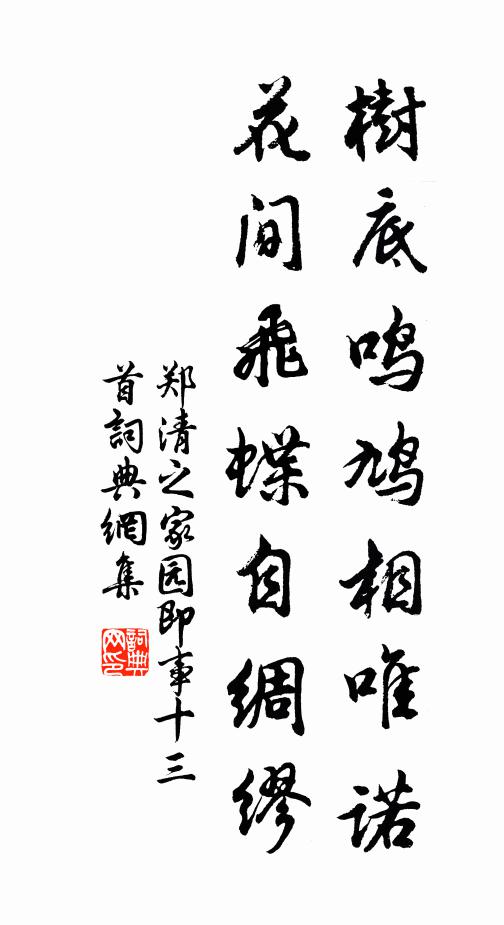 樹底鸣鸠相唯诺
花间飛蝶自綢繆
郑清之家园即事十三
首詞典網集
詞典
网印